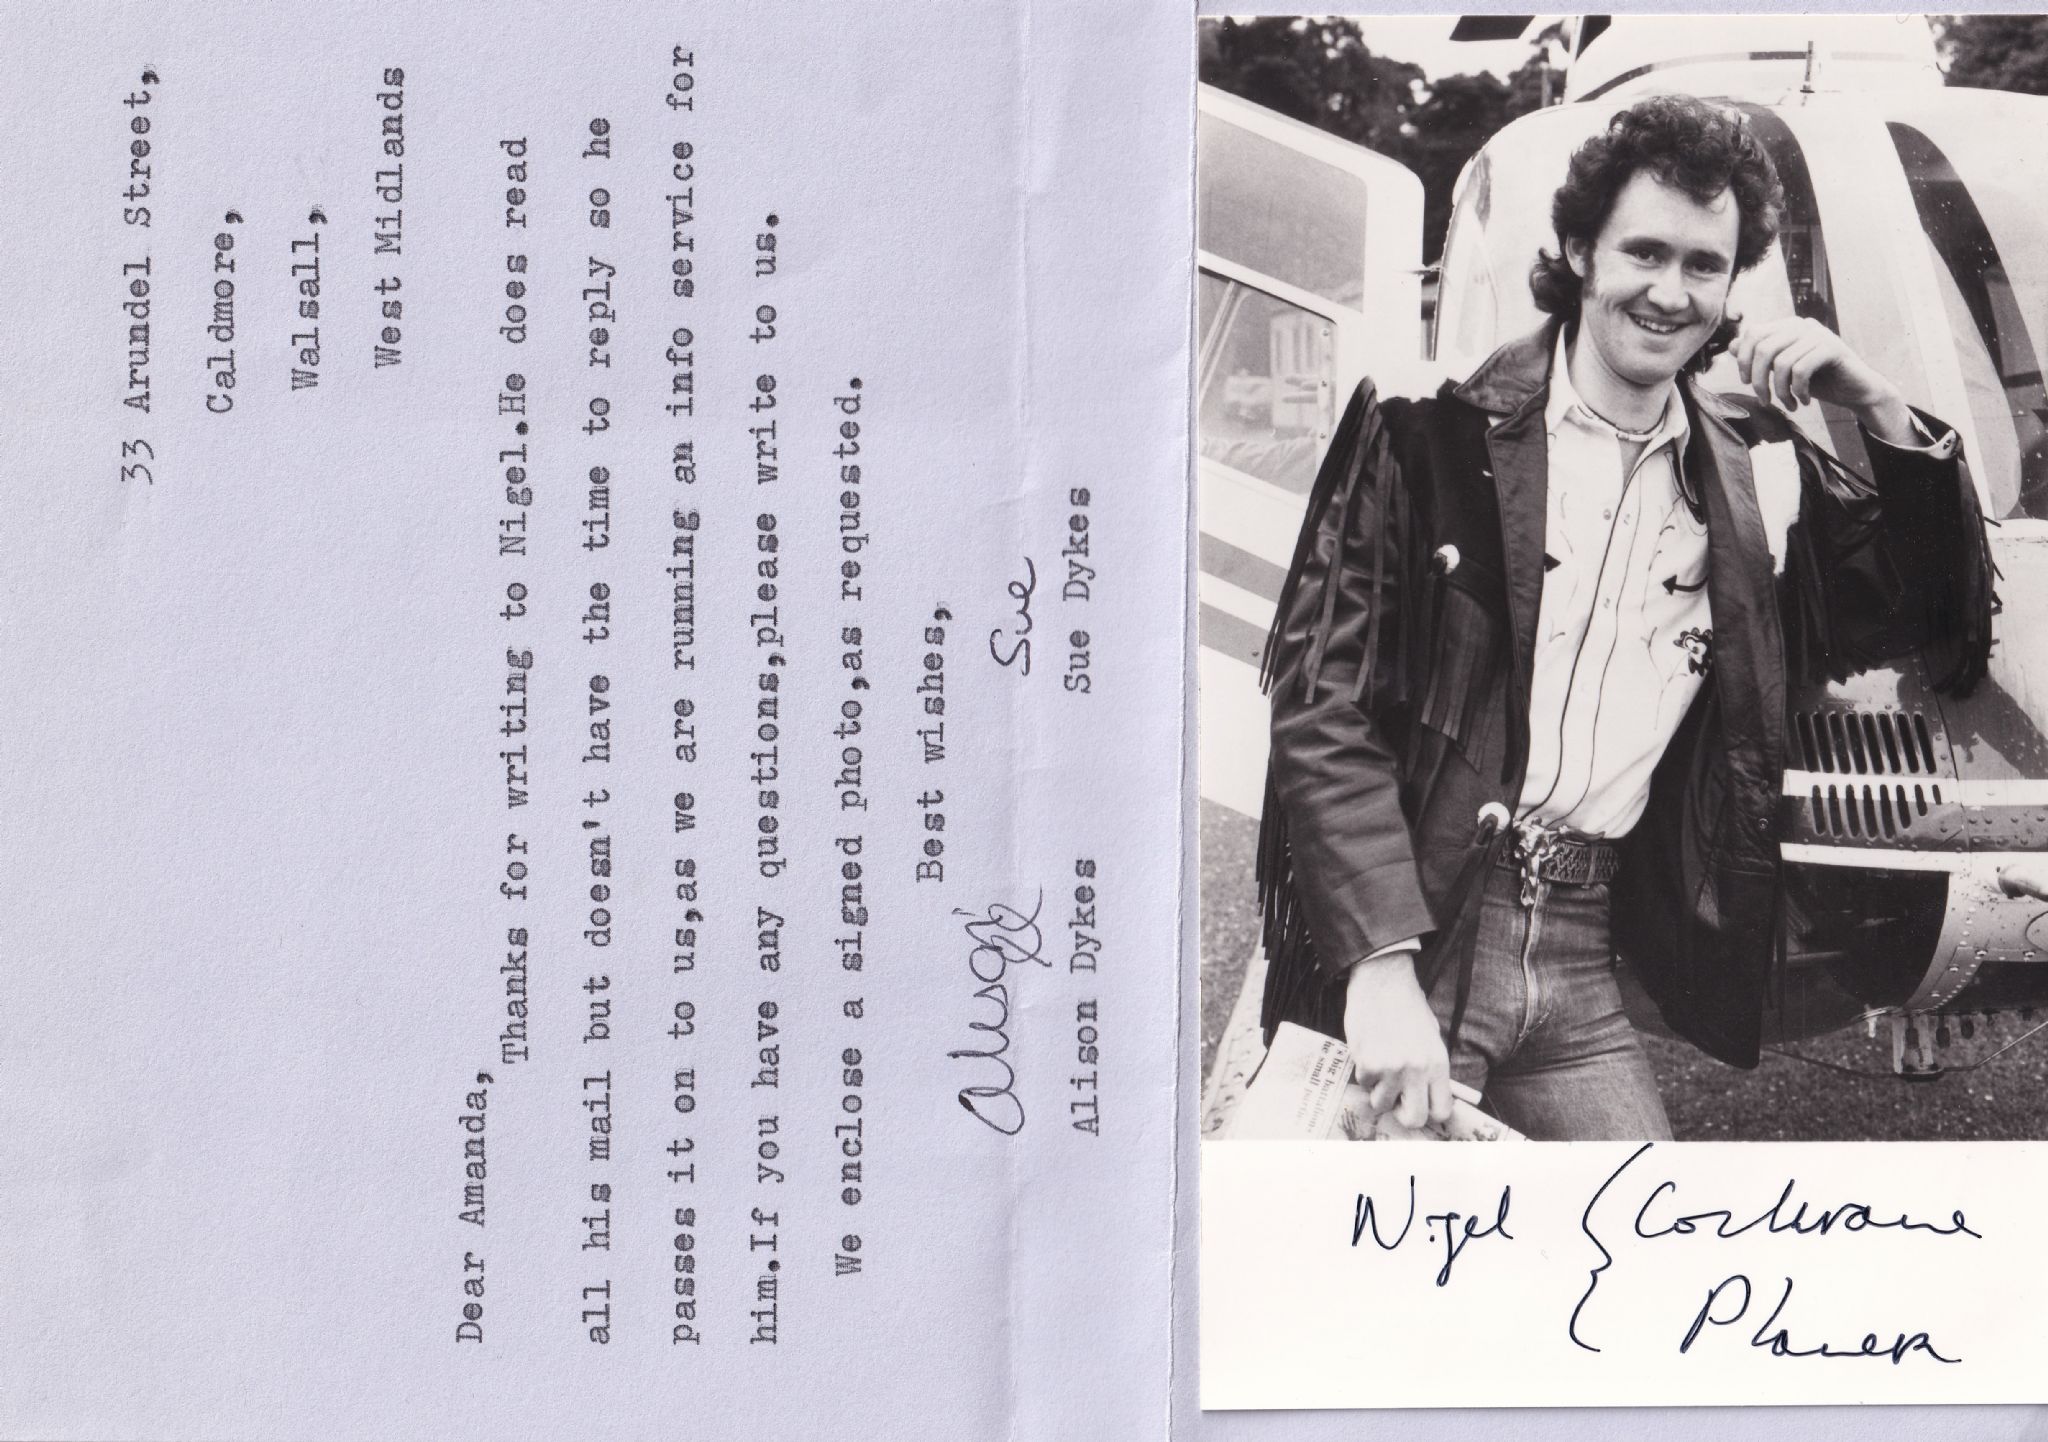 33 Arundel Street,
Caldmore,
Walsall,
West Midlands
Dear Amanda,
Thanks for writing to Nigel.He does read
all his mail but doesn't have the time to reply so he
passes it on to us,as we are running an info service for
him.If you have any questions,please write to us.
We enclose a signed photo,as requested.
Best wishes,
Alison Sue
Alison Dykes Sue Dykes
's big battalions
he small parties
Nigel { Cochrane
Planer